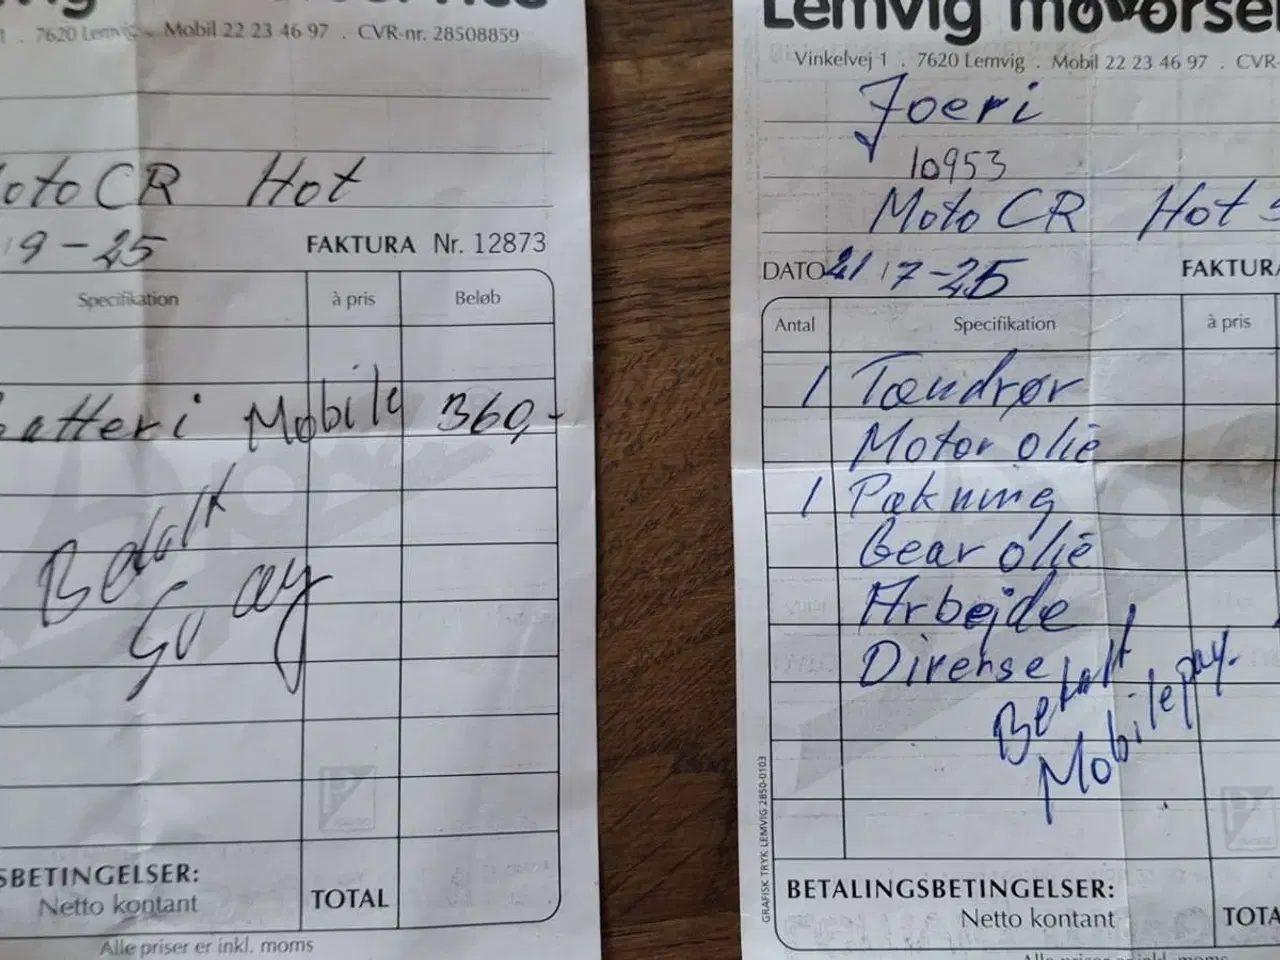 7620 Lemvig . Mobil 22 23 46 97 . CVR-nr. 28508859
MotoCR Hot
9-25 FAKTURA Nr. 12873
Specifikation à pris Beløb
Batteri Mobile 360,-
Betalt
SBETINGELSER:
Netto kontant TOTAL
Alle priser er inkl. moms
Lemvig motorser
Vinkelvej 1 . 7620 Lemvig . Mobil 22 23 46 97 . CVR-
Joeri
10953
Moto CR Hot S
DATO 21/7-25 FAKTURA
Antal Specifikation à pris
1 Tændrør
Motor olie
1 Pakning
Gear olie
Arbejde
Dirense
Betalt
Mobilepay.
GRAFISK TRYK LEMVIG 2850-0103
BETALINGSBETINGELSER:
Netto kontant TOTA
Alle priser er inkl. moms